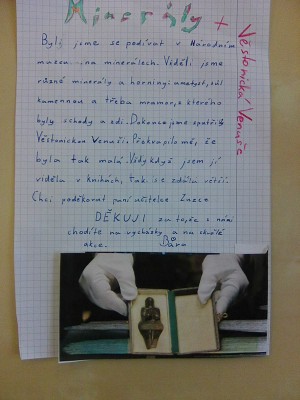 Minerály + Věstonická Venuše
Byli jsme se podívat v Národním
muzeu na minerálech. Viděli jsme
různé minerály a horniny: ametyst, sůl
kamennou a třeba mramor, z kterého
byly schody a zdi. Dokonce jsme spatřili
Věstonickou Venuši. Překvapilo mě, že
byla tak malá. Vždy když jsem jí
viděla v knihách, tak se zdála větší.
Chci poděkovat paní učitelce
DĚKUJI za to, že s námi
chodíte na vycházky a na skvělé
akce. Bára